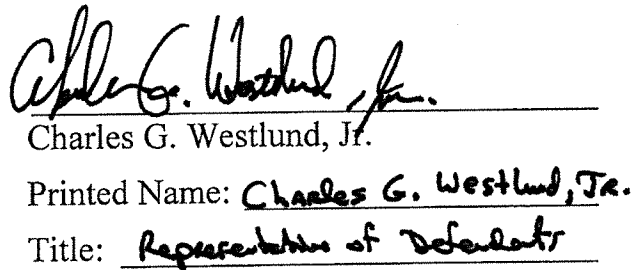 Charles G. Westlund, Jr.
Charles G. Westlund, Jr.
Printed Name: Charles G. Westlund, Jr.
Title: Representative of Defendants